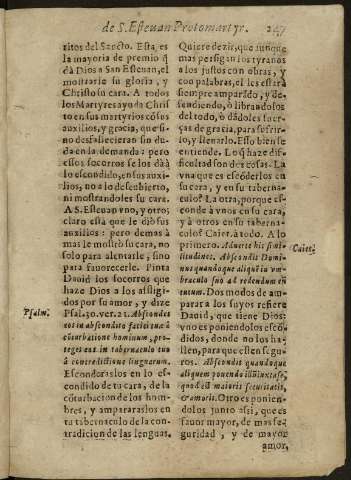 de S. Esteuan Protomartyr. 247
ritos del Sancto. Esta, es
la mayoria de premio q̃
dà Dios a San Esteuan, el
mostrarle su gloria, y
Christo su cara. A todos
los Martyres ayuda Chris
to en sus martyrios cō sus
auxilios, y gracia, que si-
no desfallecieran sin du-
da en la demanda: pero
essos socorros se los dà à
lo escondido, en sus auxi-
lios, no a lo descubierto,
ni mostrandoles su cara.
A S. Esteuan vno, y otro;
claro està que le diò sus
auxilios: pero demas à
mas le mostrò su cara, no
solo para alentarle, sino
para fauorecerle. Pinta
Dauid los socorros que
haze Dios a los affligi-
dos por su amor, y dize
Psalm. Psal. 30. ver. 21. Abscondes
eos in abscondito faciei tuæ à
cōturbatione hominum, pro-
teges eos in tabernaculo tuo
à contradictione linguarum.
Escondoràslos en lo es-
condido de tu cara, de la
cōturbacion de los hom-
bres, y ampararàslos en
tu tabernaculo de la con-
tradicion de las lenguas.
Quiere dezir, que aunque
mas persigan los tyranos
a los justos con obras, y
con palabras, el les estarà
siempre amparãdo, y de-
fendiendo, ò librandolos
del todo, ò dãdoles fuer-
ças de gracia, para sufrir-
lo, y lleuarlo. Esso bien se
entiende. Lo q̃ haze diffi-
cultad son dos cosas. La
vna que es escōderlos en
su cara, y en su taberna-
culo? La otra, porque es-
conde à vnos en su cara,
y à otros en su taberna-
culo? Caiet. à todo. A lo
primero. Aduerte his simi- Caiet.
litudines. Abscondis Domi-
nus quandoque aliquē in vm-
braculo suo ad redendum en
tentum. Dos modos de am-
parar a los suyos refiere
Dauid, que tiene Dios:
vno es poniendolos escō-
didos, donde no los ha-
llen, para que esten segu-
ros. Abscondis quandoque
aliquem ponendo illū iuxta se,
quod est maioris securitatis,
& amoris. Otro es ponien-
dolos junto assi, que es
fauor mayor, de mas se-
guridad, y de mayor
amor,